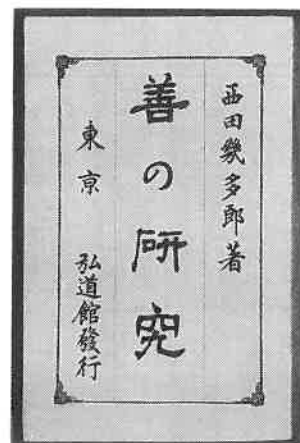 西田幾多郎著
善の研究
東京 弘道館發行